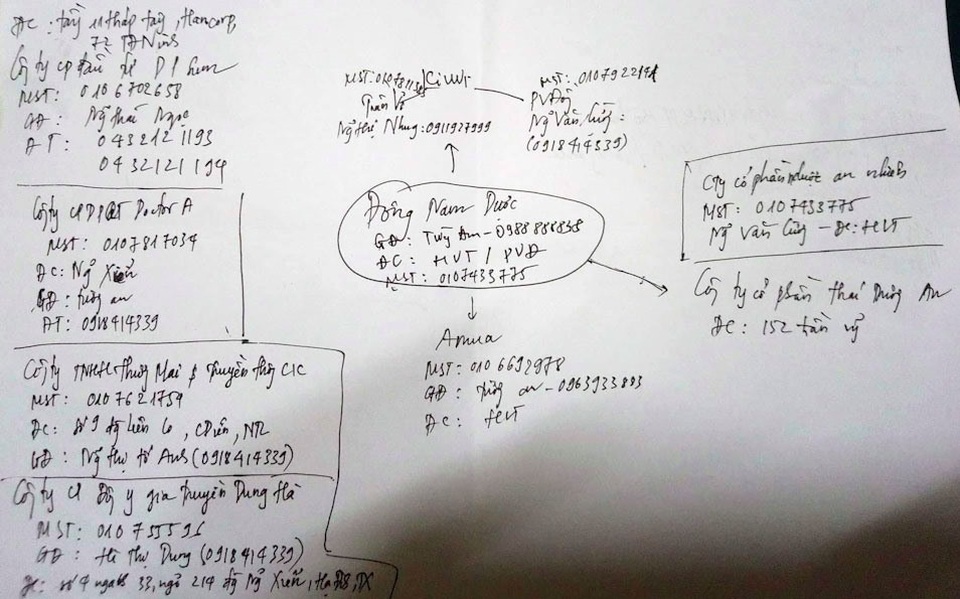 ĐC: tầng 11 tháp tây, Hancorp,
72 TĐNinh
Công ty cp đầu
MST: 0106702658
GĐ: Ng Thái Ngọc
ĐT: 0432121193
0432121194
Công ty CPDP QT Doctor A
MST: 0107817034
ĐC: Ng Xiển
GĐ: tường an
ĐT: 0918414339
Công ty TNHH Thương Mại & Truyền thông CIC
MST: 0107621754
ĐC: số 9 liên cơ, CDiễn, NTL
GĐ: Ng thị tú Anh (0918414339)
Công ty CP Đông y gia truyền Dung Hà
MST: 010755596
GĐ: Hà Thị Dung (0918414339)
ĐC: số 4 ngách 33, ngõ 214 Ng Xiển, Hạ Đình, TX
MST:
Tuấn Vũ
Ng thị Nhung: 0911927999
MST:
PVĐồng
Ng Văn Cừng:
(0918414339)
Đông Nam Dược
GĐ: An - 0988888838
ĐC: HVT / PVĐ
MST: 0107433775
Amua
MST: 0106692978
GĐ: tường an - 0963933883
ĐC: HVT
Cty cổ phần dược an nhiên
MST: 0107433775
Ng Văn Cừng - ĐC: HVT
Công ty cổ phần thái Dương An
ĐC: 152 tân